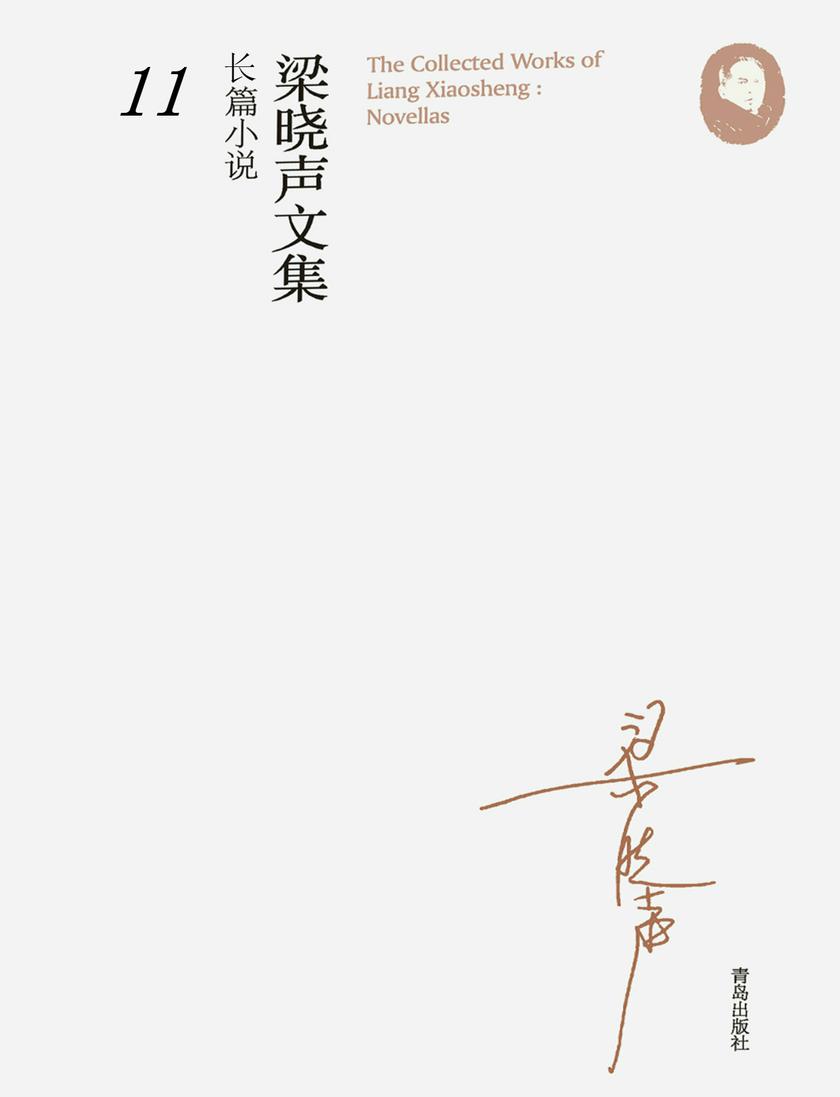 11
长篇小说
梁晓声文集
The Collected Works of
Liang Xiaosheng :
Novellas
梁晓声
青岛出版社